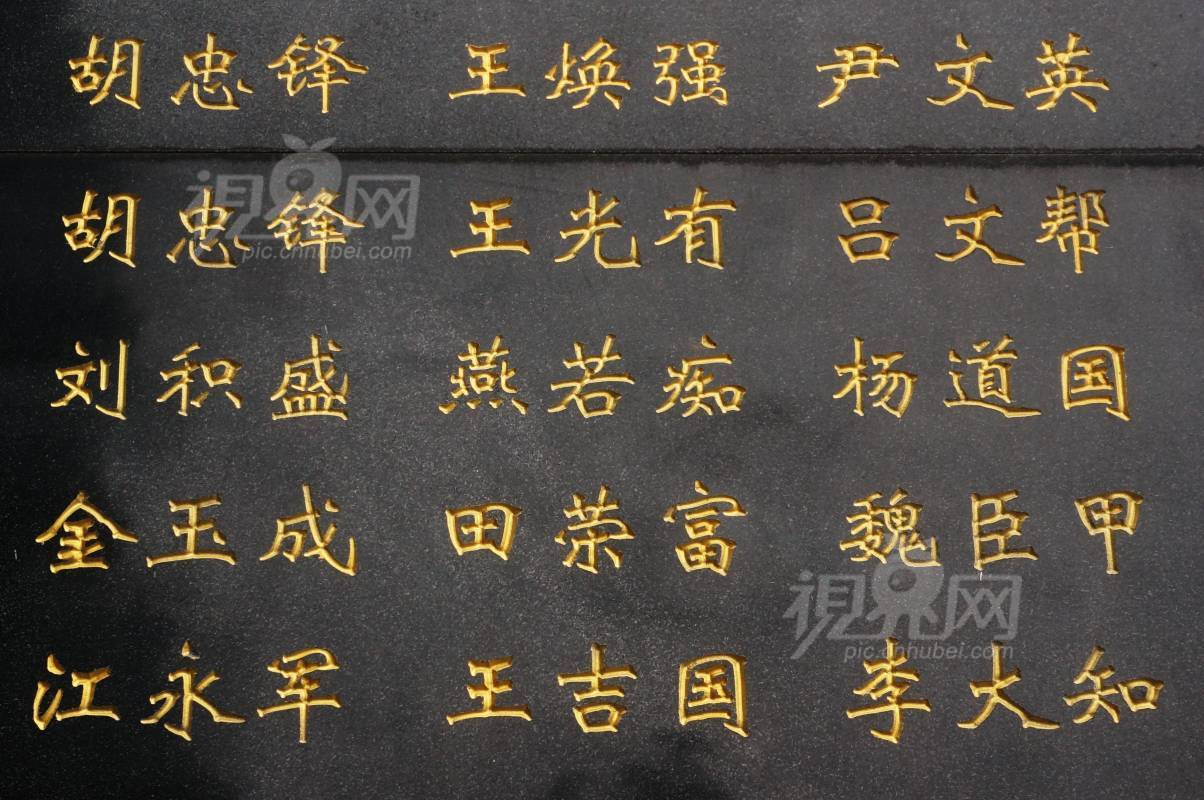 胡忠锋 王焕强 尹文英
胡忠锋 王光有 吕文帮
刘积盛 燕若痴 杨道国
金玉成 田荣富 魏臣甲
江永军 王吉国 李大知
視界网
pic.cnhubei.com
視界网
pic.cnhubei.com